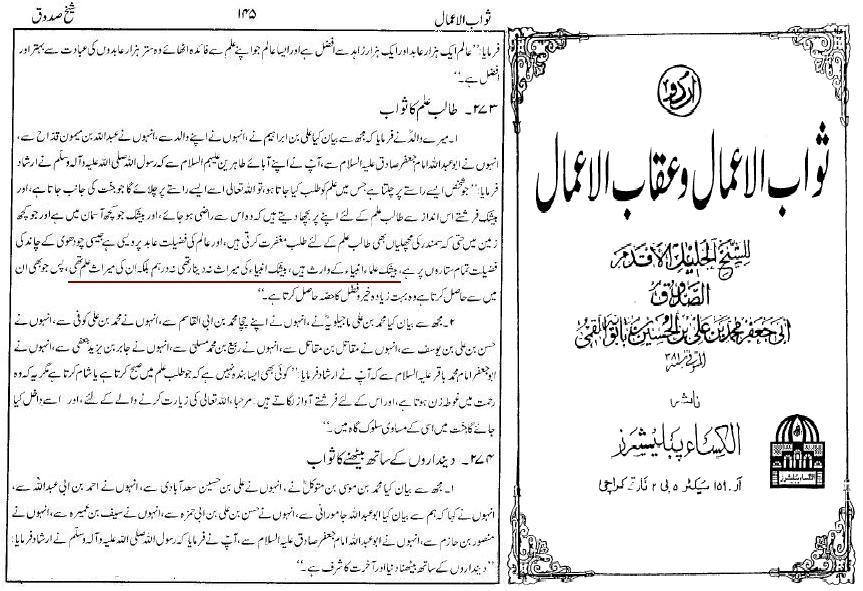 ثواب الاعمال ۱۴۵ شیخ صدوق
فرمایا: ’’عالم ایک ہزار عابد اور ایک ہزار زاہد سے افضل ہے اور ایسا عالم جو اپنے علم سے فائدہ اٹھائے وہ ستر ہزار عابدوں کی عبادت سے بہتر اور
افضل ہے۔‘‘
۲۷۳۔ طالب علم کا ثواب
۱۔ میرے والدؒ نے فرمایا کہ مجھ سے بیان کیا علی بن ابراھیم نے، انہوں نے اپنے والد سے، انہوں نے عبداللہ بن میمون قدّاح سے،
انہوں نے ابو عبداللہ امام جعفر صادق علیہ السلام سے، آپؑ نے اپنے آبائے طاہرین علیہم السلام سے کہ رسول اللہ صلی اللہ علیہ وآلہ وسلّم نے ارشاد
فرمایا: ’’جو شخص ایسے راستے پر چلتا ہے جس میں علم کو طلب کیا جاتا ہو، تو اللہ تعالی اسے ایسے راستے پر چلائے گا جو جنت کی جانب جاتا ہے، اور
بیشک فرشتے اس انداز سے طالب علم کے لئے اپنے پر بچھا دیتے ہیں کہ وہ اس سے راضی ہو جائے، اور بیشک جو کچھ آسمان میں ہے اور جو کچھ
زمین میں حتی کہ سمندر کی مچھلیاں بھی طالب علم کے لئے طلب مغفرت کرتی ہیں، اور عالم کی فضیلت عابد پر ویسی ہے جیسی چودھویں کے چاند کی
فضیلت تمام ستاروں پر ہے، بیشک علماء انبیاء کے وارث ہیں، بیشک انبیاء کی میراث نہ دینار تھی نہ درھم بلکہ ان کی میراث علم تھی، پس جو بھی ان
میں سے حاصل کرتا ہے وہ بہت زیادہ خیر و فضل کا حصّہ حاصل کرتا ہے۔‘‘
۲۔ مجھ سے بیان کیا محمد بن علی ماجیلویہؒ نے، انہوں نے اپنے چچا محمد بن ابی القاسم سے، انہوں نے محمد بن علی کوفی سے، انہوں نے
حسن بن علی بن یوسف سے، انہوں نے مقاتل بن مقاتل سے، انہوں نے ربیع بن محمد مسلی سے، انہوں نے جابر بن یزید جعفی سے، انہوں نے
ابو جعفر امام محمد باقر علیہ السلام سے کہ آپؑ نے ارشاد فرمایا: ’’کوئی بھی ایسا بندہ نہیں ہے کہ جو طلب علم میں صبح کرتا ہے یا شام کرتا ہے مگر یہ کہ وہ
رحمت میں غوطہ زن ہوتا ہے، اور اس کے لئے فرشتے آواز لگاتے ہیں: مرحبا، اللہ تعالی کی زیارت کرنے والے کے لئے، اور اسے داخل کیا
جائے گا جنت میں اسی کے مساوی سلوک گاہ میں۔‘‘
۲۷۴۔ دینداروں کے ساتھ بیٹھنے کا ثواب
۱۔ مجھ سے بیان کیا محمد بن موسی بن متوکلؒ نے، انہوں نے علی بن حسین سعد آبادی سے، انہوں نے احمد بن ابی عبداللہ سے،
انہوں نے کہا کہ ہم سے بیان کیا ابو عبداللہ جامورانی سے، انہوں نے حسن بن علی بن ابی حمزہ سے، انہوں نے سیف بن عمیرہ سے، انہوں نے
منصور بن حازم سے، انہوں نے ابو عبداللہ امام جعفر صادق علیہ السلام سے، آپؑ نے فرمایا کہ رسول اللہ صلی اللہ علیہ وآلہ وسلّم نے ارشاد فرمایا:
’’دینداروں کے ساتھ بیٹھنا دنیا اور آخرت کا شرف ہے۔‘‘
اردو
ثواب الاعمال و عقاب الاعمال
للشیخ الجلیل الأقدم
الصدوق
ابی جعفر محمد بن علی بن الحسین بن بابویہ القمی
المتوفی ۳۸۱
ناشر
الکساء پبلیشرز
آر۔ ۱۵۹ سیکٹر ۵ بی ۲ نارتھ کراچی
الکساء پبلیشرز